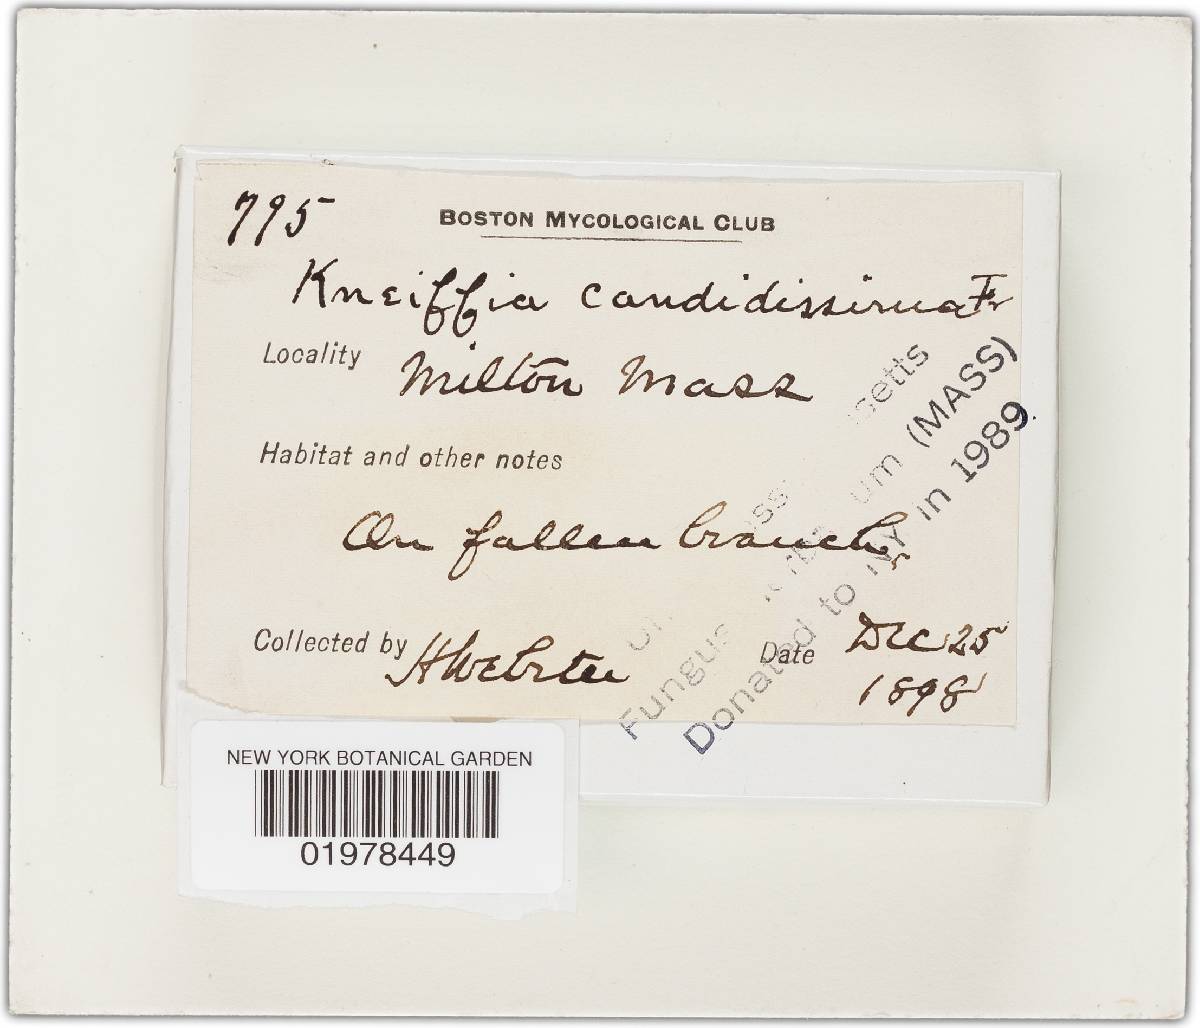 795
BOSTON MYCOLOGICAL CLUB
Kneiffia candidissima Fr
Locality Milton Mass
Habitat and other notes
On fallen branch.
Collected by H Webster Date Dec 25
1898
setts
Fungus um (MASS)
Donated to NY in 1989
NEW YORK BOTANICAL GARDEN
01978449